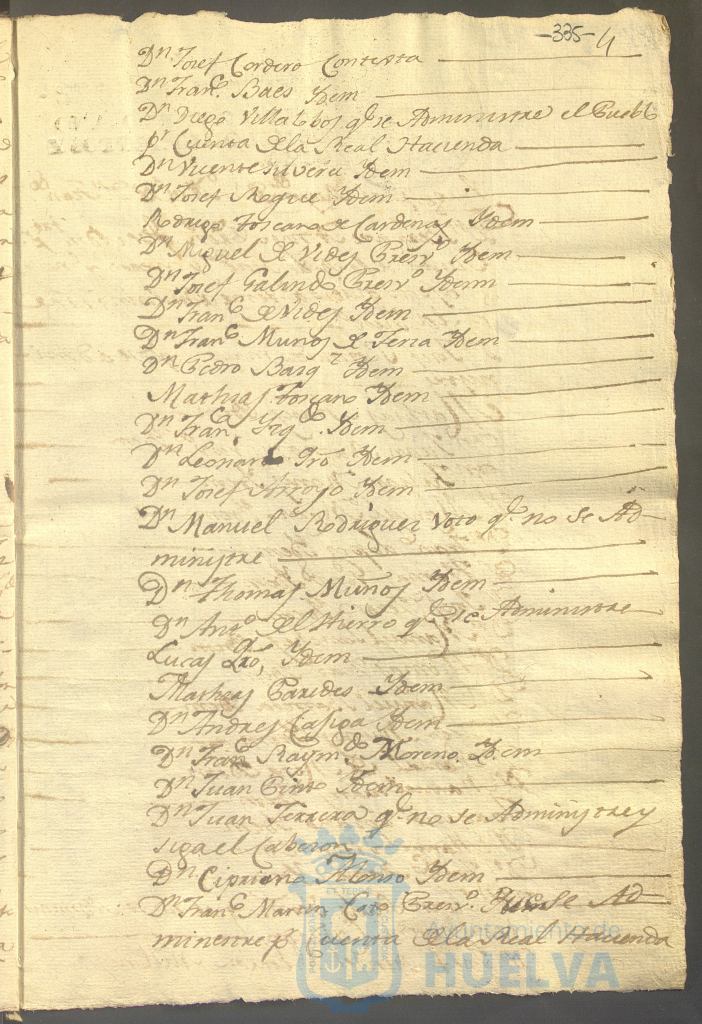 -335- 4
Dn Josef Cordero Contexta
Dn Franco. Baes Ydem
Dn Diego Villalobos qe. se Administre el Pueblo
pr. Cuenta de la Real Hacienda
Dn Vicente Silvera Ydem
Dn Josef Roque Ydem
Rodrigo Toscano de Cardenas Ydem
Dn Miguel de Vides Presvo. Ydem
Dn Josef Galindo Presvo. Ydem
Dn Franco. de Vides Ydem
Dn Franco. Muños de Ydem
Dn Pedro Ydem
Mathias Toscano Ydem
Dn Franco. Ydem
Dn Leonardo Ydem
Dn Josef Arroyo Ydem
Dn Manuel Rodriguez Voto qe. no se Ad-
ministre
Dn Thomas Muños Ydem
Dn Anto. del Hierro qe. se Administre
Lucas Ydem
Matheas Paredes Ydem
Dn Andres Ydem
Dn Franco. Raymdo. Moreno. Ydem
Dn Juan Pinto Ydem
Dn Juan Ferrera qe. no se Administre y
siga el Cabezon
Dn Cipriano Alonso Ydem
Dn Franco. Martin Presvo. se Ad-
ministre pr. Cuenta de la Real Hacienda
Ayuntamiento de
HUELVA